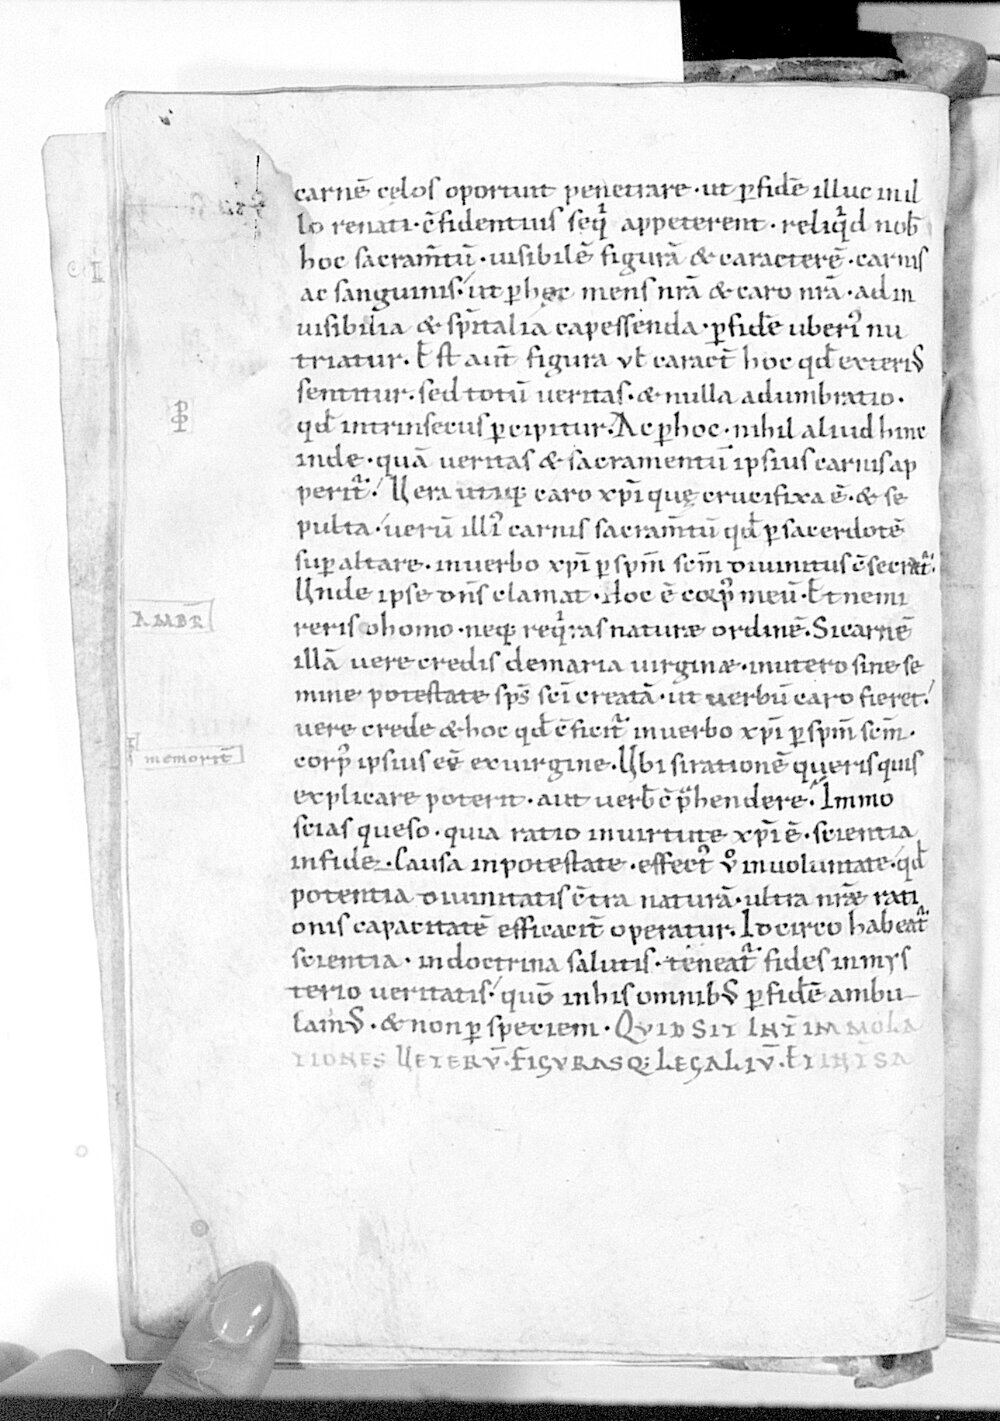 carnē cęlos oportuit penetrare · ut ꝑfidē illuc in il
lo renati · c̄fidentius seqͥ appeterent · reliqͥd nob̄
hoc sacram̄tū · uisibilē figurā & caracterē · carnis
ac sanguinis · ut ꝑ hęc mens nr̄a & caro nr̄a · ad in
uisibilia & sp̄italia capessenda · ꝑ fidē uberiꝰ nu
triatur · Ē st̄ aut̄ figura vł caract̄ hoc qd̄ exteriꝰ
sentitur · sed totū ueritas · & nulla adumbratio ·
qd̄ intrinsecus ꝑcipitur · Ac ꝑ hoc · nihil aliud hinc
inde · quā ueritas & sacramentū ipsius carnis ap
perit᷑ · Uera utiq; caro xp̄i quę crucifixa ē · & se
pulta · uerū illiꝰ carnis sacram̄tū qd̄ ꝑ sacerdotē
suꝑ altare · in uerbo xp̄i ꝑ sp̄m sc̄m diuinitus c̄secrat᷑ ·
Unde ipse dn̄s clamat · Hoc ē corpꝰ meū · Et nemi
reris o homo · neq; reqͥras naturæ ordinē · Si carnē
illā uere credis de maria uirginæ · in utero sine se
mine potestate sp̄s sc̄i creatā · ut uerbū caro fieret ·
uere crede & hoc qd̄ c̄ficit᷑ in uerbo xp̄i ꝑ sp̄m sc̄m ·
corpꝰ ipsius eē ex uirgine · Ubi si rationē queris quis
explicare poterit · aut uerb̄ c̄p̄hendere · Immo
scias queso · quia ratio in uirtute xp̄i ē · scientia
in fide · Causa in potestate · effectꝰ vͦ in uoluntate · qd̄
potentia diuinitatis c̄tra naturā · ultra nr̄æ rati
onis capacitatē efficacit̄ operatur · Idcirco habeat᷑
scientia · in doctrina salutis · teneat᷑ fides in mys
terio ueritatis · quō in his omnibꝰ ꝑ fidē ambu
lamꝰ · & non ꝑ speciem · QVID SIT INT̄ IMMOLA
TIONES VETERV̄ · FIGVRASQ; LEGALIV̄ · ET INT̄ SA
AMBR̄
memorit̄